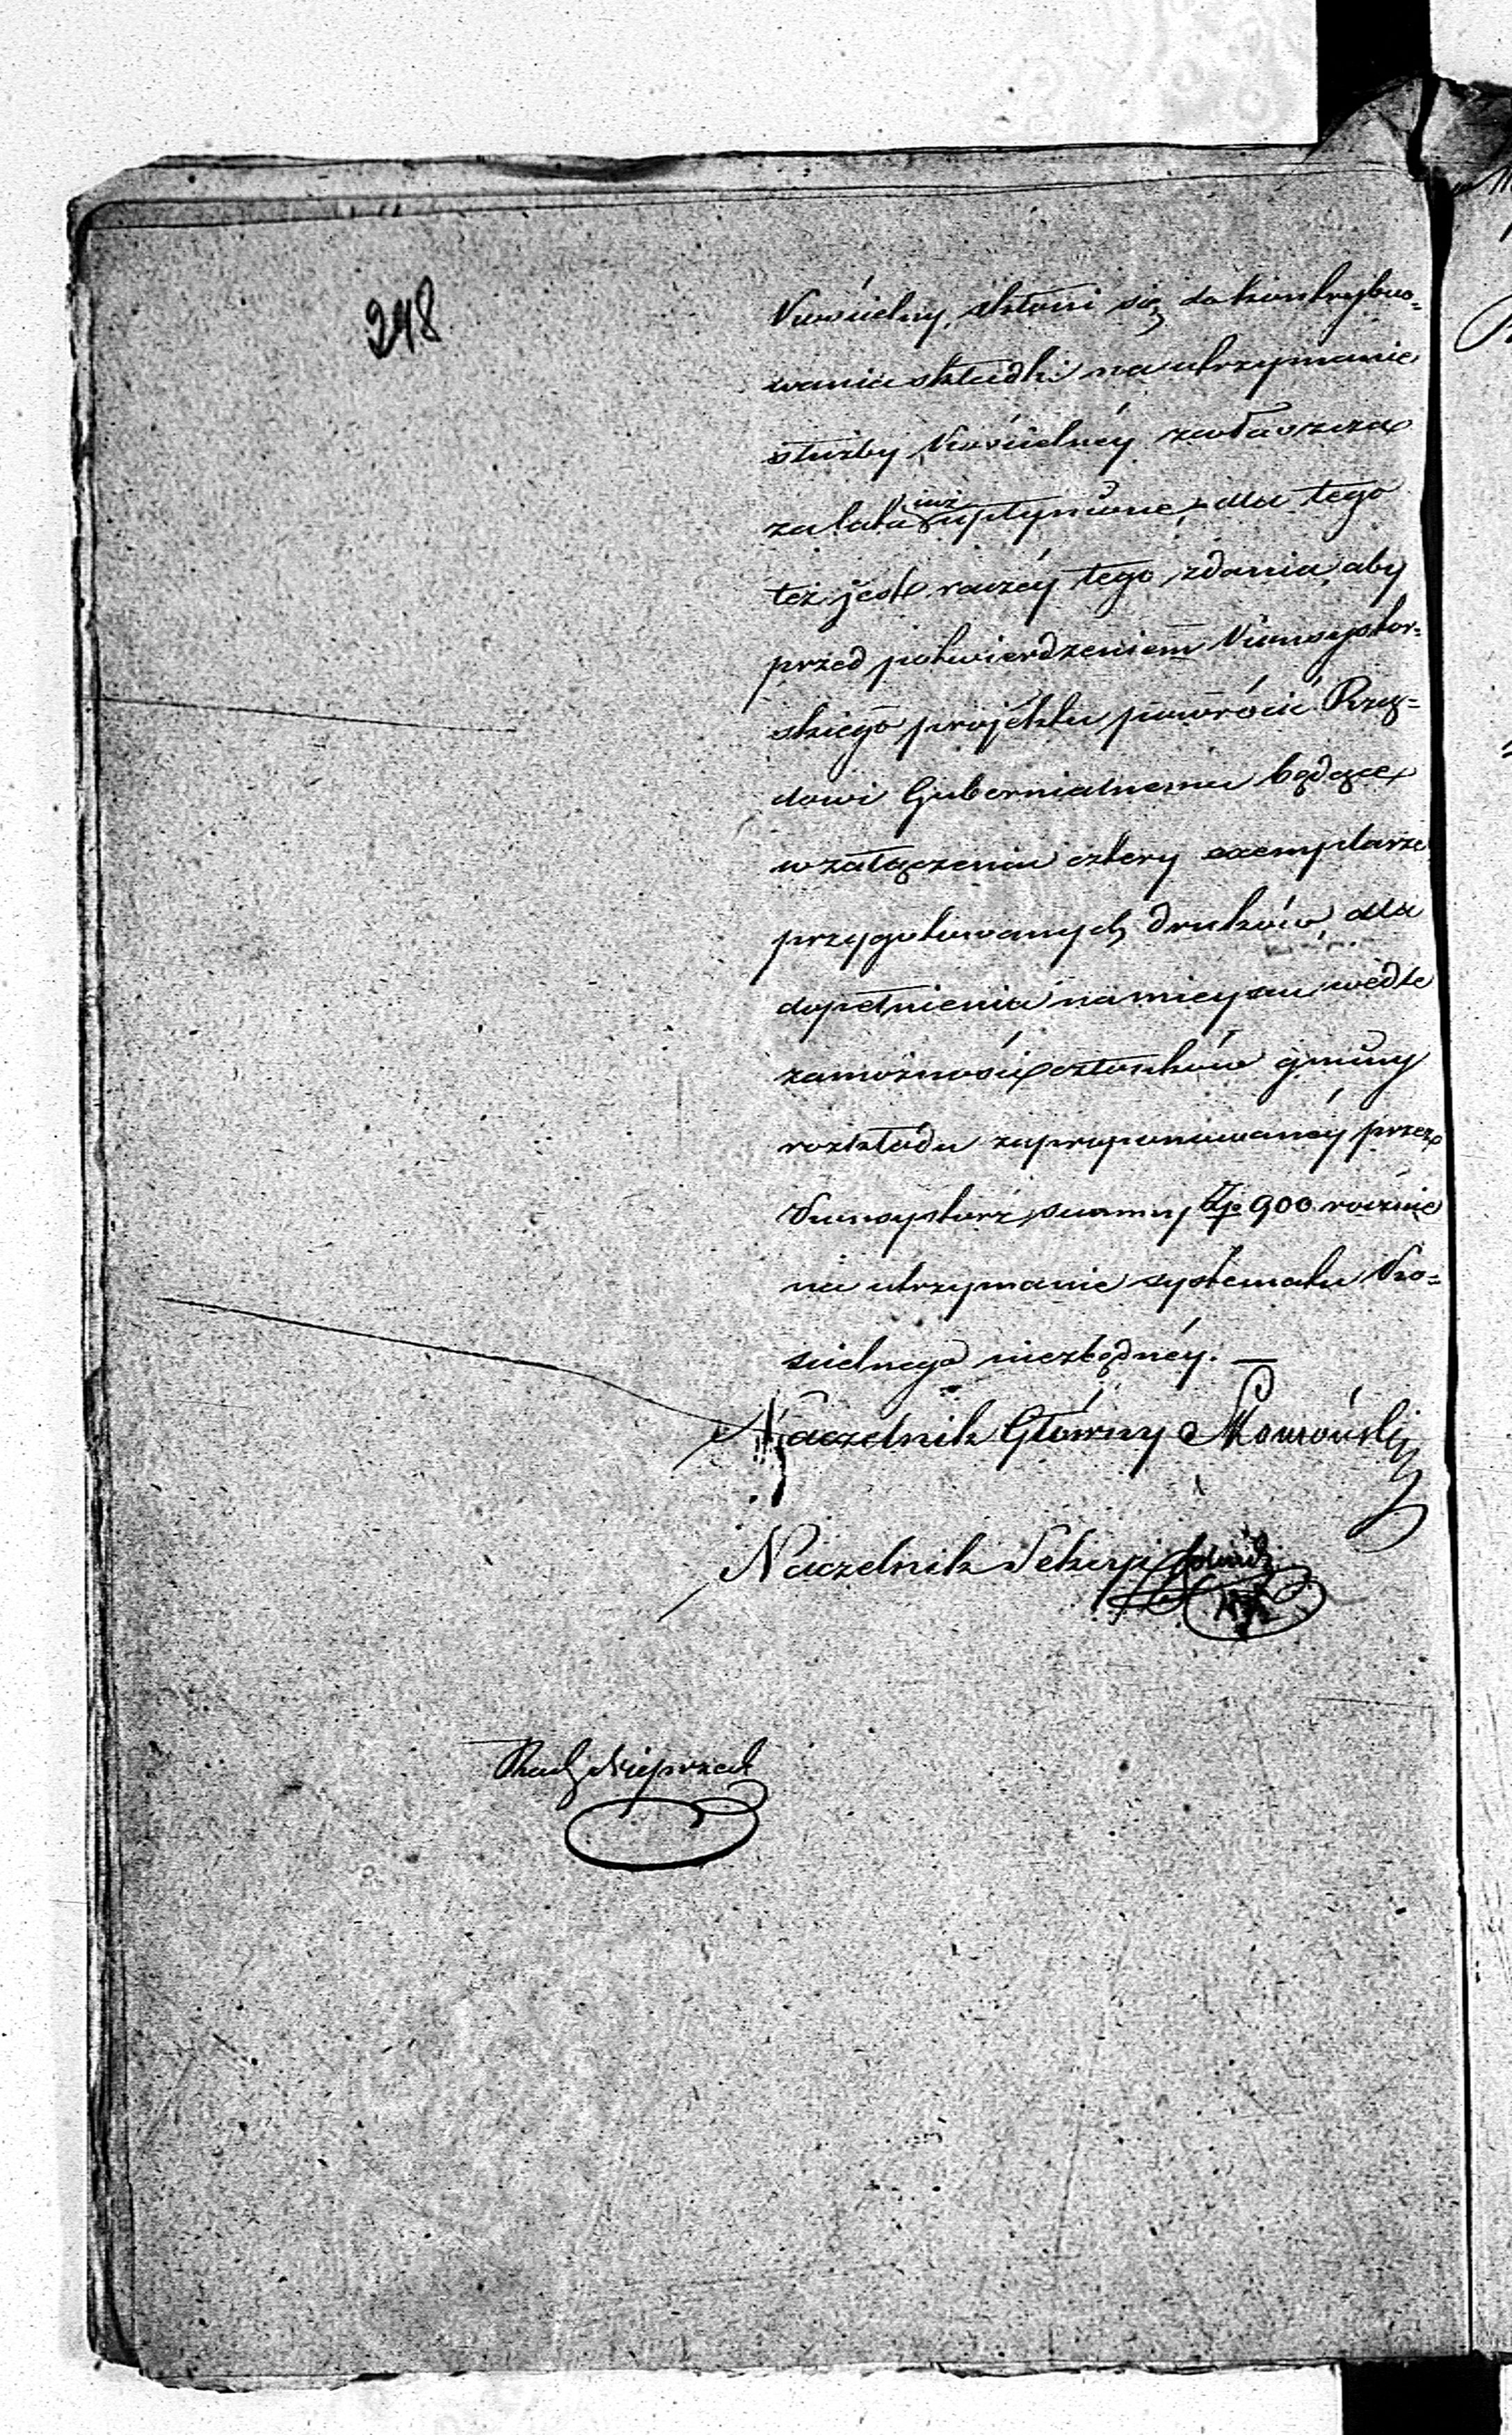 248
Kościelny, skłoni się do kontrybuo=
wania składki na utrzymanie
służby Kościelnéy zwłaszcza
za lata już upłynione, dla tego
też jest raczéy tego zdania, aby
przed potwierdzeniem Konsystor=
skiego projektu powrócić Rzą=
dowi Gubernialnemu będące
w załączeniu cztery exemplarze
przygotowanych druków, dla
dopełnienia na mieyscu wedle
zamożności członków gminy
rozkładu zaproponowanéy przez
Konsystorz summy Złp 900 rocznie
na utrzymanie systematu Ko=
ścielnego niezbędnéy. —
Naczelnik Główny
Naczelnik Sekcyi